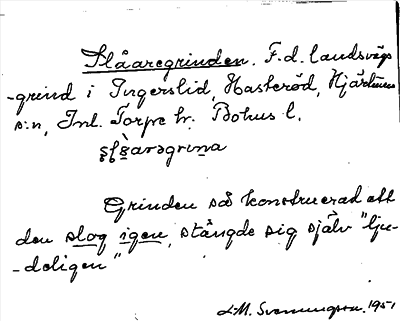 Slåaregrinden. F.d. landsvägs
-grind i Ingerslid, Hasteröd, Hjärtums
s:n, Inl. Torpe hr. Bohus l.
Grinden så konstruerad att
den slog igen, stängde sig själv "lju-
-deligen"
L.M. Svenungsson. 1951